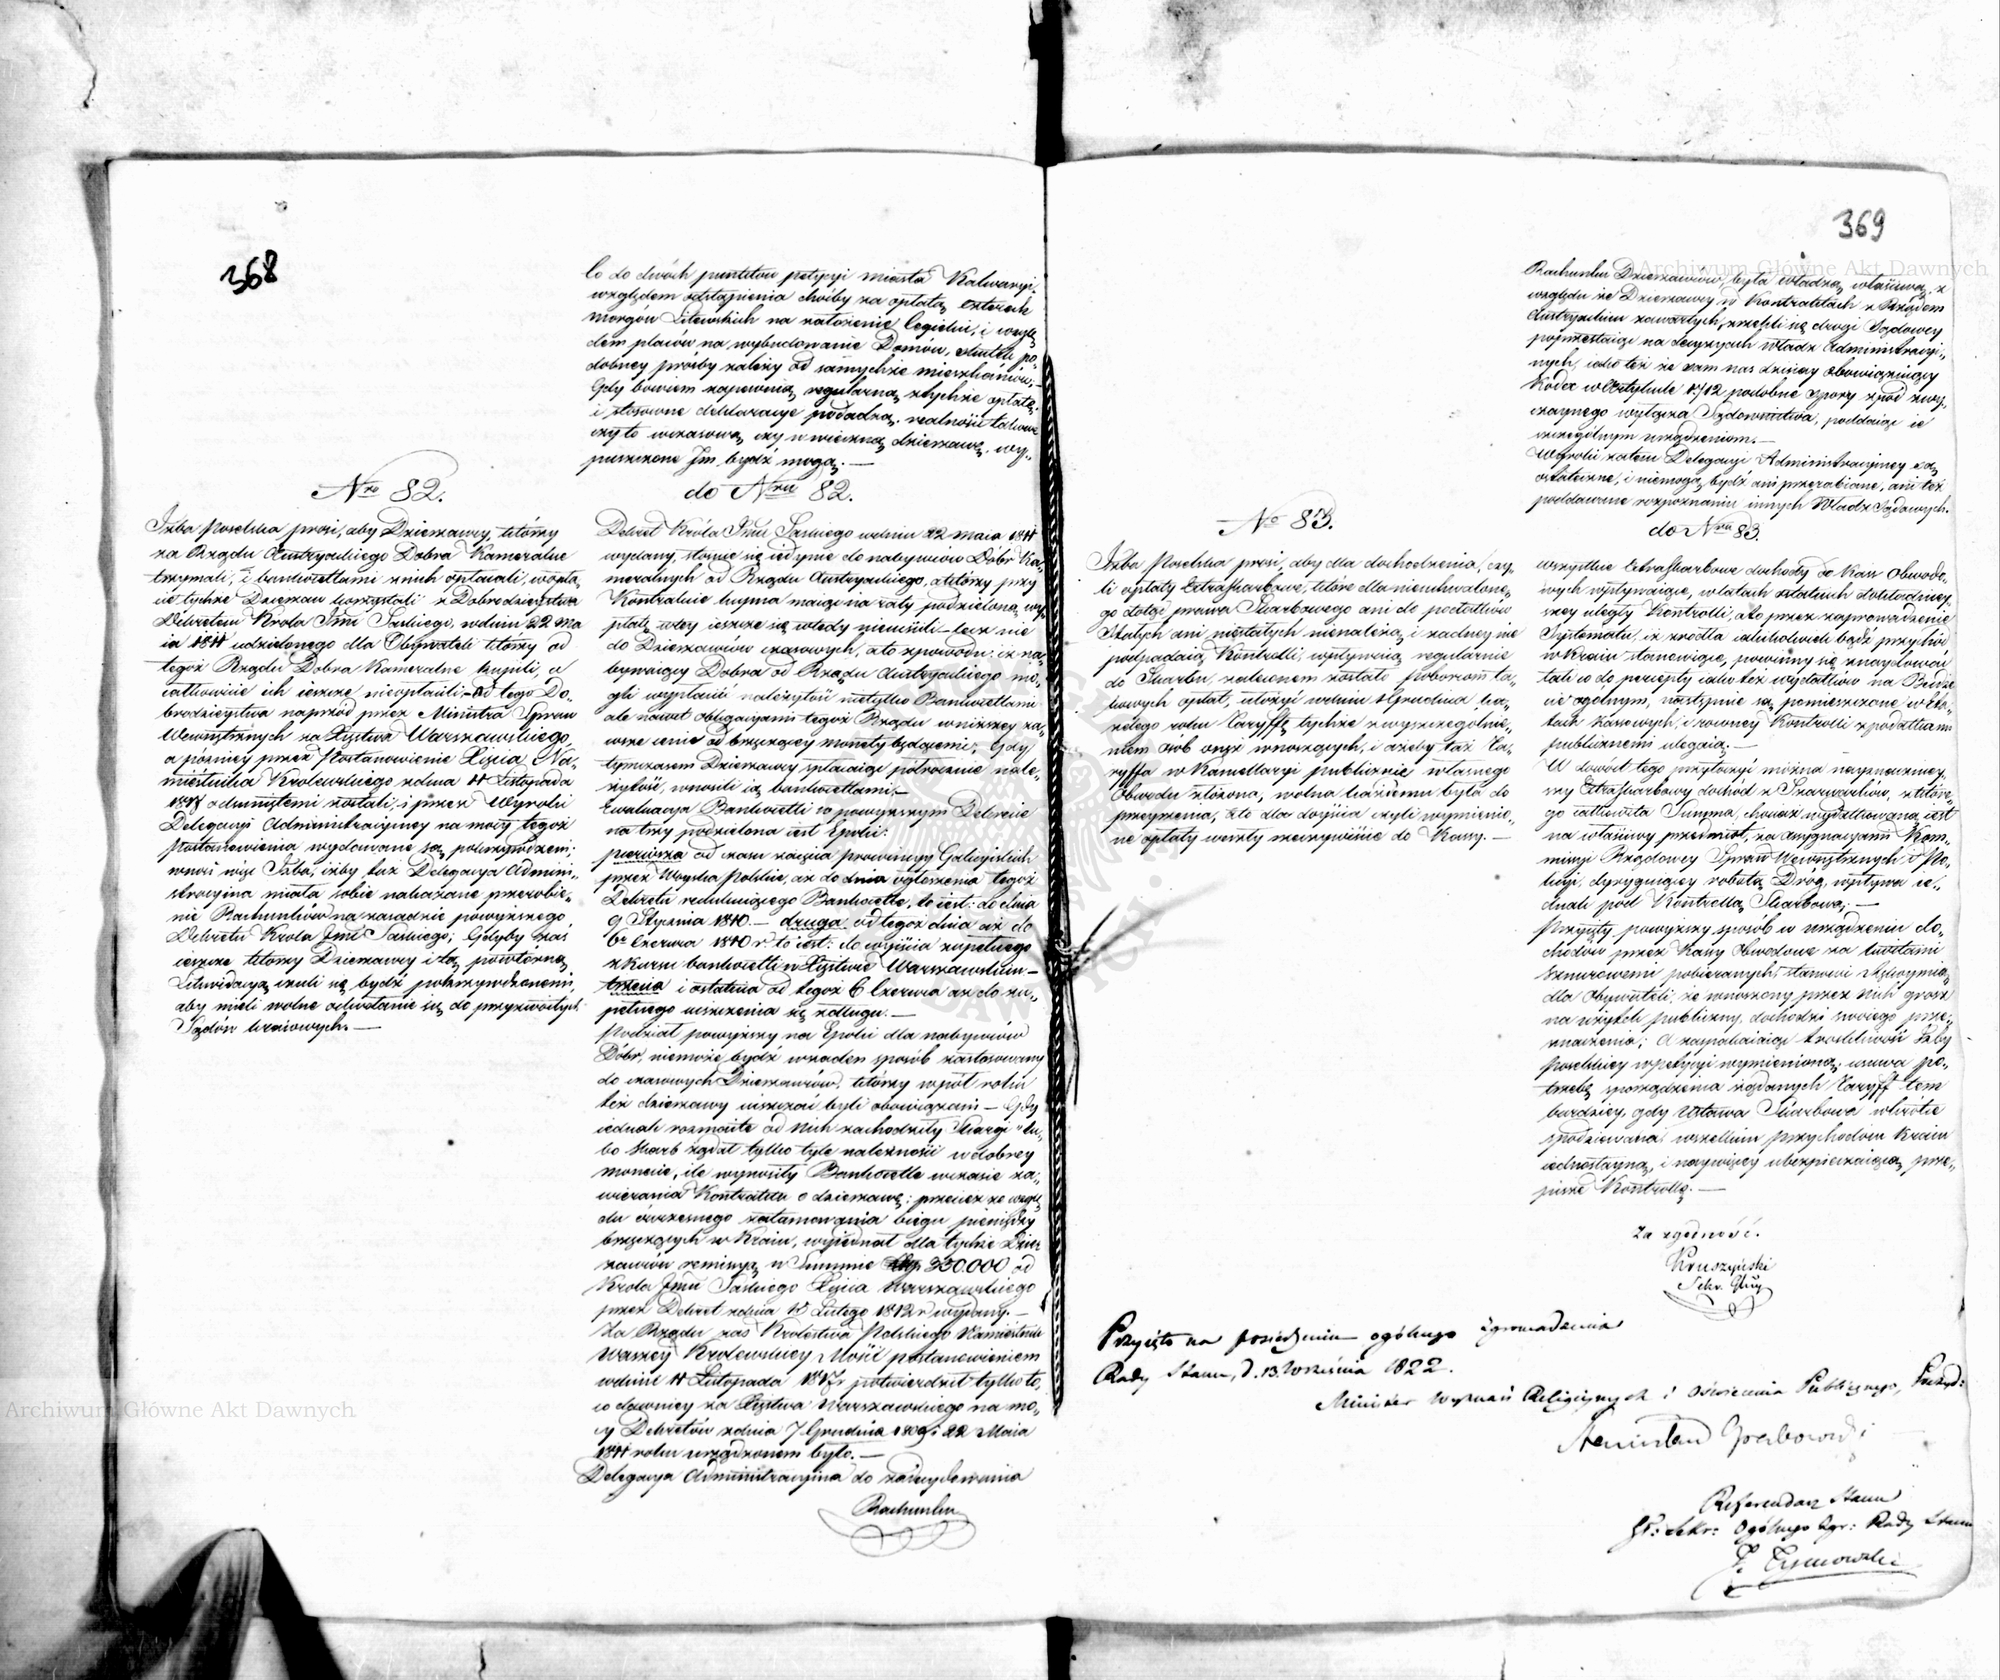 368
lo do dwóch punktów petycyi miasta Kalwaryi
względem odstąpienia choćby za opłatą czterech
morgów Litewskich na założenie Cegielni, i wzglę
dem placów na wybudowanie Domów, skutek po„
dobney prośby zależy od samychże mieszkańców;
Gdy bowiem zapewnią regularną z tychże opłatę,
i stosowne deklaracye podadzą, realności takowe
czy to w czasową, czy w wieczną dzierżawę, wy„
puszczone Im bydź mogą. —
Nro 82.
Izba Poselska prosi, aby Dzierżawcy, którzy
za Rządu Austryackiego Dobra Kameralne
trzymali, i bankocetlami z nich opłacali, w opła
cie tychże Dzierżaw korzystali z Dobrodzieystwa
Dekretem Króla Jmci Saskiego, w dniu 22 Ma
ia 1811 udzielonego dla Obywateli którzy od
tegoż Rządu Dobra Kameralne kupili, a
całkowicie ich ieszcze nieopłacili — od tego Do„
brodzieystwa naprzód przez Ministra Spraw
Wewnętrznych za Xięstwa Warszawskiego,
a późniey przez Postanowienie Xięcia Na„
miestnika Królewskiego z dnia 11 Listopada
1817 odsuniętemi zostali, i przez Wyroki
Delegacyi Administracyiney na mocy tegoż
Postanowienia wydawane są pokrzywdzeni;
wnosi więc Izba, iżby taż Delegacya Admini„
stracyina miała sobie nakazane przerobie„
nie Rachunków na zasadzie powyższego
Dekretu Króla Jmci Saskiego; Gdyby zaś
ieszcze którzy Dzierżawcy i tą powtórną
Likwidacyą czuli się bydź pokrzywdzonemi,
aby mieli wolne odwołanie się do przyzwoitych
Sądów kraiowych. —
do Nru 82.
Dekret Króla Jmci Saskiego w dniu 22 Maia 1811
wydany, stosuie się iedynie do nabywców Dóbr Ka„
meralnych od Rządu Austryackiego, a którzy przy
Kontrakcie kupna maiąc na raty podzieloną wy„
płatę, w tey ieszcze się wtedy nieuiścili — lecz nie
do Dzierżawców czasowych, a to z powodu: iż na„
bywaiący Dobra od Rządu Austryackiego mo„
gli wypłacić należytość nietylko Bankocetlami
ale nawet obligacyami tegoż Rządu w niższey za„
wsze cenie od brzęczącey monety będącemi; Gdy
tymczasem Dzierżawcy spłacaiąc półrocznie nale„
żytość, wnosili ią bankocetlami. —
Ewaluacya Bankocetli w powyższym Dekrecie
na trzy podzielona iest Epoki:
pierwsza od czasu zaięcia prowincyy Galicyiskich
przez Woyska Polskie, aż do dnia ogłoszenia tegoż
Dekretu redukuiącego Bankocetle, to iest: do dnia
9 Stycznia 1810. — druga od tegoż dnia aż do
6o Czerwca 1810 r. to iest: do wyiścia zupełnego
z kursu bankocetli w Xięstwie Warszawskim —
trzecia i ostatnia od tegoż 6 Czerwca aż do zu„
pełnego uiszczenia się z długu. —
Podział powyższy na Epoki dla nabywców
Dóbr, niemoże bydź w żaden sposób zastosowany
do czasowych Dzierżawców, którzy w pół roku
też dzierżawy uiszczać byli obowiązani — Gdy
iednak rozmaite od Nich zachodziły Skargi „lu„
bo Skarb żądał tylko tyle należności w dobrey
monecie, ile wynosiły Bankocetle w czasie za„
wierania Kontraktu o dzierżawę; przecież ze wzglę
du ówczesnego zatamowania biegu pieniędzy
brzęczących w Kraiu, wyiednał dla tychże Dzier
żawców remissę w Summie Złp. 330.000 od
Króla Jmci Saskiego Xięcia Warszawskiego
przez Dekret z dnia 15 Lutego 1812 r. wydany. —
Za Rządu zaś Królestwa Polskiego Namiestnik
Waszey Królewskiey Mości postanowieniem
w dniu 11 Listopada 1817 r. potwierdził tylko to,
co dawniey za Xięstwa Warszawskiego na mo„
cy Dekretów z dnia 7 Grudnia 1809 i 22 Maia
1811 roku urządzonem było. —
Delegacya Administracyina do zawyrokowania
Rachunku
369
Rachunku Dzierżawców, była władzą właściwą, z
względu że Dzierżawcy w Kontraktach z Rządem
Austryackim zawartych, zrzekli się drogi Sądowey
poprzestaiąc na decyzyach władz Administracyi„
nych, iako też że sam nas dzisiay obowiązuiący
Kodex w Artykule 1712 podobne spory z pod zwy„
czaynego wyłącza Sądownictwa, poddaiąc ie
szczególnym urządzeniom. —
Wyroki zatem Delegacyi Administracyiney są
ostateczne, i niemogą bydź ani przerabiane, ani też
poddawane rozpoznaniu innych Władz Sądowych.
No 83.
Izba Poselska prosi, aby dla dochodzenia, czy„
li opłaty Extraskarbowe, które dla nieuchwalone„
go dotąd prawa Skarbowego ani do podatków
Stałych ani niestałych nienależą, i żadney nie
podpadaią Kontrolli, wpływaią regularnie
do Skarbu, zaleconem zostało Poborcom ta„
kowych opłat, ułożyć w dniu 1 Grudnia ka„
żdego roku Taryffę tychże z wyszczególnie„
niem osób onych wnoszących, i ażeby taż Ta„
ryffa w Kancellaryi publicznie własnego
Obwodu złożona, wolna każdemu była do
przeyrzenia, a to dla doyścia czyli wymienio„
ne opłaty weszły rzeczywiście do Kassy. —
do Nru 83.
Wszystkie Extraskarbowe dochody do Kass Obwodo„
wych wpływaiące, w latach ostatnich dokładniey„
szey uległy Kontrolli, a to przez zaprowadzenie
Systematu, iż źródła iakichkolwiek bądź przychód
w kraiu stanowiące, powinny się znaydować
tak co do percepty iako też wydatków na Budże
cie ogólnym, następnie są pomieszczone w Eta„
tach Kassowych, i równey Kontrolli z podatkami
publicznemi ulegaią. —
W dowód tego przytoczyć można nayznaczniey„
szy Extraskarbowy dochód z Szarwarków, z które„
go całkowita Summa, chociaż wydatkowaną iest
na właściwy przedmiot, za assygnacyami Kom„
missyi Rządowey Spraw Wewnętrznych i Po„
licyi, dyryguiącey robotą Dróg, wpływa ie„
dnak pod Kontrollą Skarbową; —
Przyięty powyższy sposób w urządzeniu do„
chodów przez Kassy Obwodowe za kwitami
Sznurowemi pobieranych, stanowi rękoymią
dla Obywateli, że wnoszony przez Nich grosz
na użytek publiczny, dochodzi swoiego prze„
znaczenia; a zaspakaiaiąc troskliwość Izby
Poselskiey w petycyi wymienioną, usuwa po„
trzebę sporządzenia żądanych Taryff tem
bardziey, gdy Ustawa Skarbowa wkrótce
spodziewana, wszelkim przychodom Kraiu
iednostayną, i naywięcey ubezpieczaiącą prze„
pisze Kontrollę. —
Za zgodność.
Kruszyński
Sekr. Głuy
Przyięto na posiedzeniu ogólnego zgromadzenia
Rady Stanu, d. 13. Września 1822.
Minister Wyznań Religiynych i Oświecenia Publicznego, Prezyd:
Stanisław Grabowski
Referendarz Stanu
Sekr: Ogólnego Zgr: Rady Stanu
J. Tymowski
Archiwum Główne Akt Dawnych
Archiwum Główne Akt Dawnych